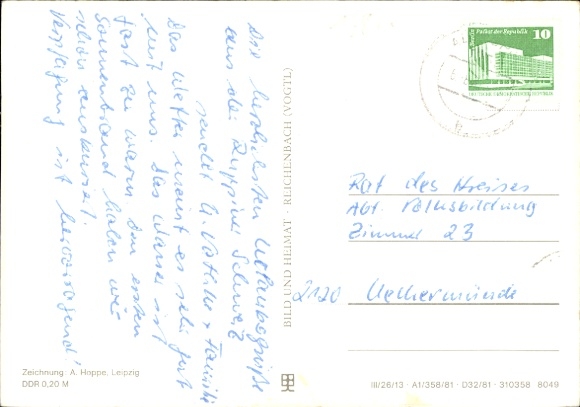 Die herzlichsten Urlaubsgrüße
aus der Ruppiner Schweiz
sendet U. Köhler + Familie
Das Wetter meint es sehr gut
mit uns. Das Wasser ist
fast zu warm. Den ersten
Sonnenbrand haben wir
schon auskuriert.
Verpflegung ist hervorragend!
BILD UND HEIMAT · REICHENBACH (VOGTL)
Berlin, Palast der Republik
10
DEUTSCHE DEMOKRATISCHE REPUBLIK
Rat des Kreises
Abt. Volksbildung
Zimmer 23
2120 Ueckermünde
Zeichnung: A. Hoppe, Leipzig
DDR 0,20 M
III/26/13 · A1/358/81 · D32/81 · 310358 8049